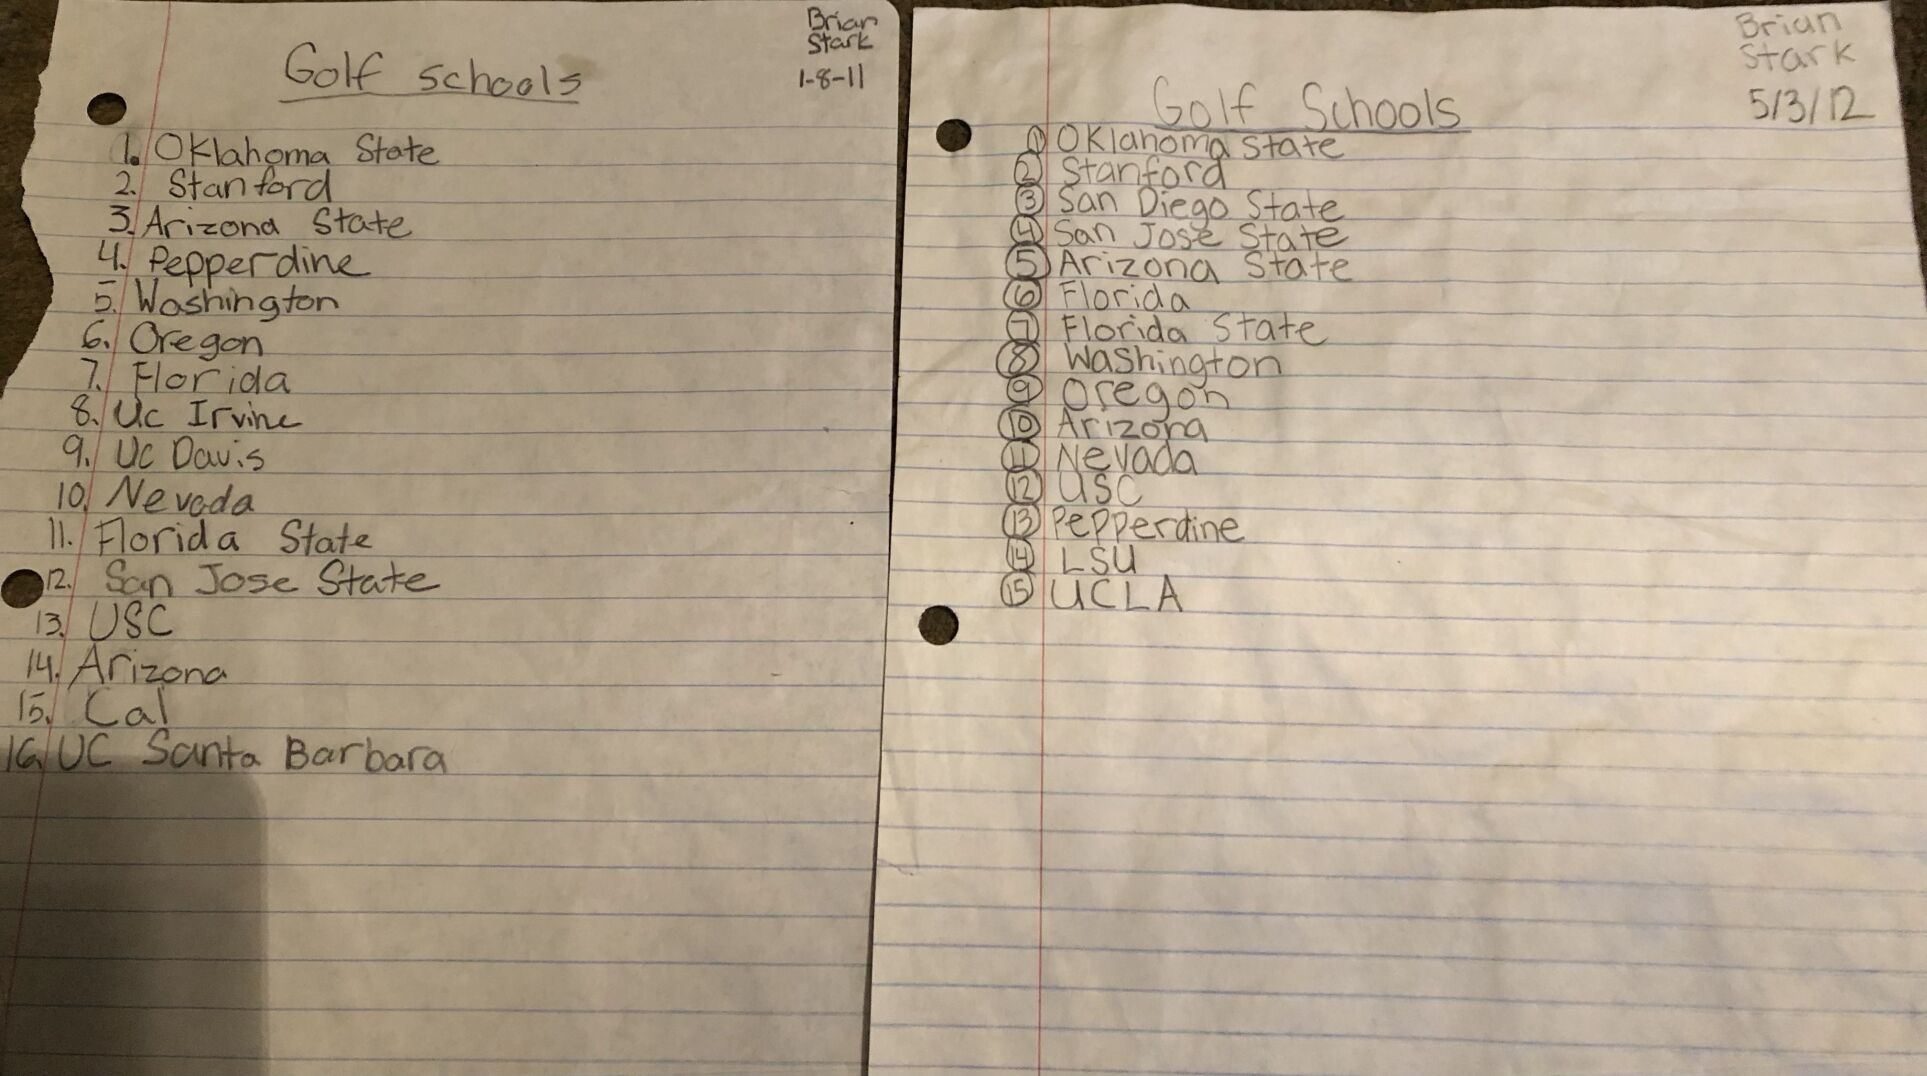 Brian
Stark
1-8-11
Golf Schools
1. Oklahoma State
2. Stanford
3. Arizona State
4. Pepperdine
5. Washington
6. Oregon
7. Florida
8. Uc Irvine
9. Uc Davis
10. Nevada
11. Florida State
12. San Jose State
13. USC
14. Arizona
15. Cal
16. UC Santa Barbara
Brian
Stark
5/3/12
Golf Schools
1 Oklahoma State
2 Stanford
3 San Diego State
4 San Jose State
5 Arizona State
6 Florida
7 Florida State
8 Washington
9 Oregon
10 Arizona
11 Nevada
12 USC
13 Pepperdine
14 LSU
15 UCLA